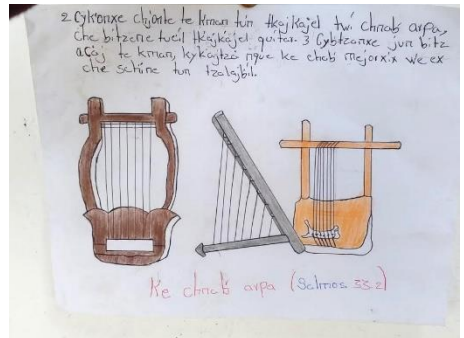 2 Cyk'onxe chjonte te kman tun tkajkajel twi chnab arpa,
che bitzene tuẍil tkajkajel guitar. 3 Cybtzanxe jun bitz
acaj te kman, kykajtza ke chab mejorxix we ex
che schine tun tzalajbil.
Ke chnab arpa (Salmos 33.2)